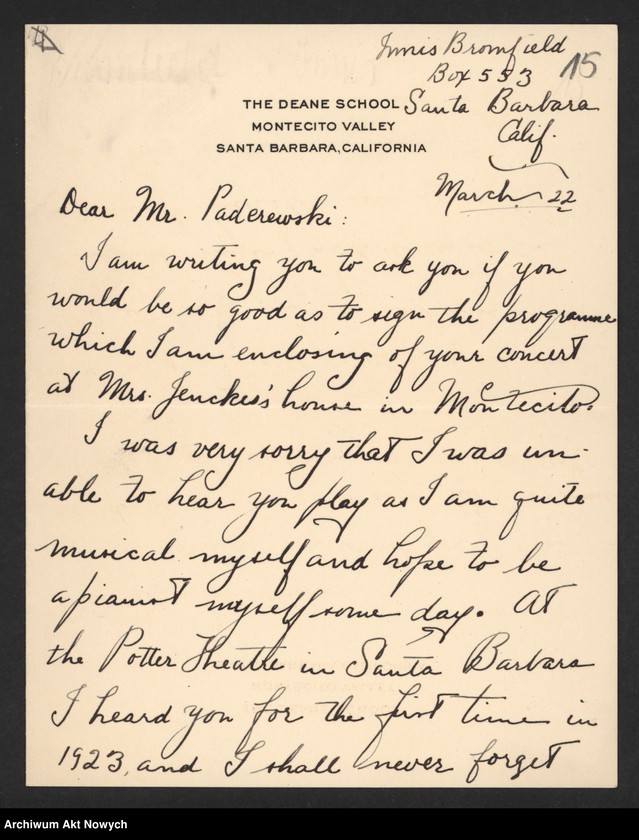 Innis Bromfield
Box 553
15
THE DEANE SCHOOL Santa Barbara
MONTECITO VALLEY Calif.
SANTA BARBARA, CALIFORNIA
March 22
Dear Mr. Paderewski:
I am writing you to ask you if you
would be so good as to sign the programme
which I am enclosing of your concert
at Mrs. Jenckes's house in Montecito.
I was very sorry that I was un-
able to hear you play as I am quite
musical myself and hope to be
a pianist myself some day. At
the Potter Theatre in Santa Barbara
I heard you for the first time in
1923, and I shall never forget
Archiwum Akt Nowych